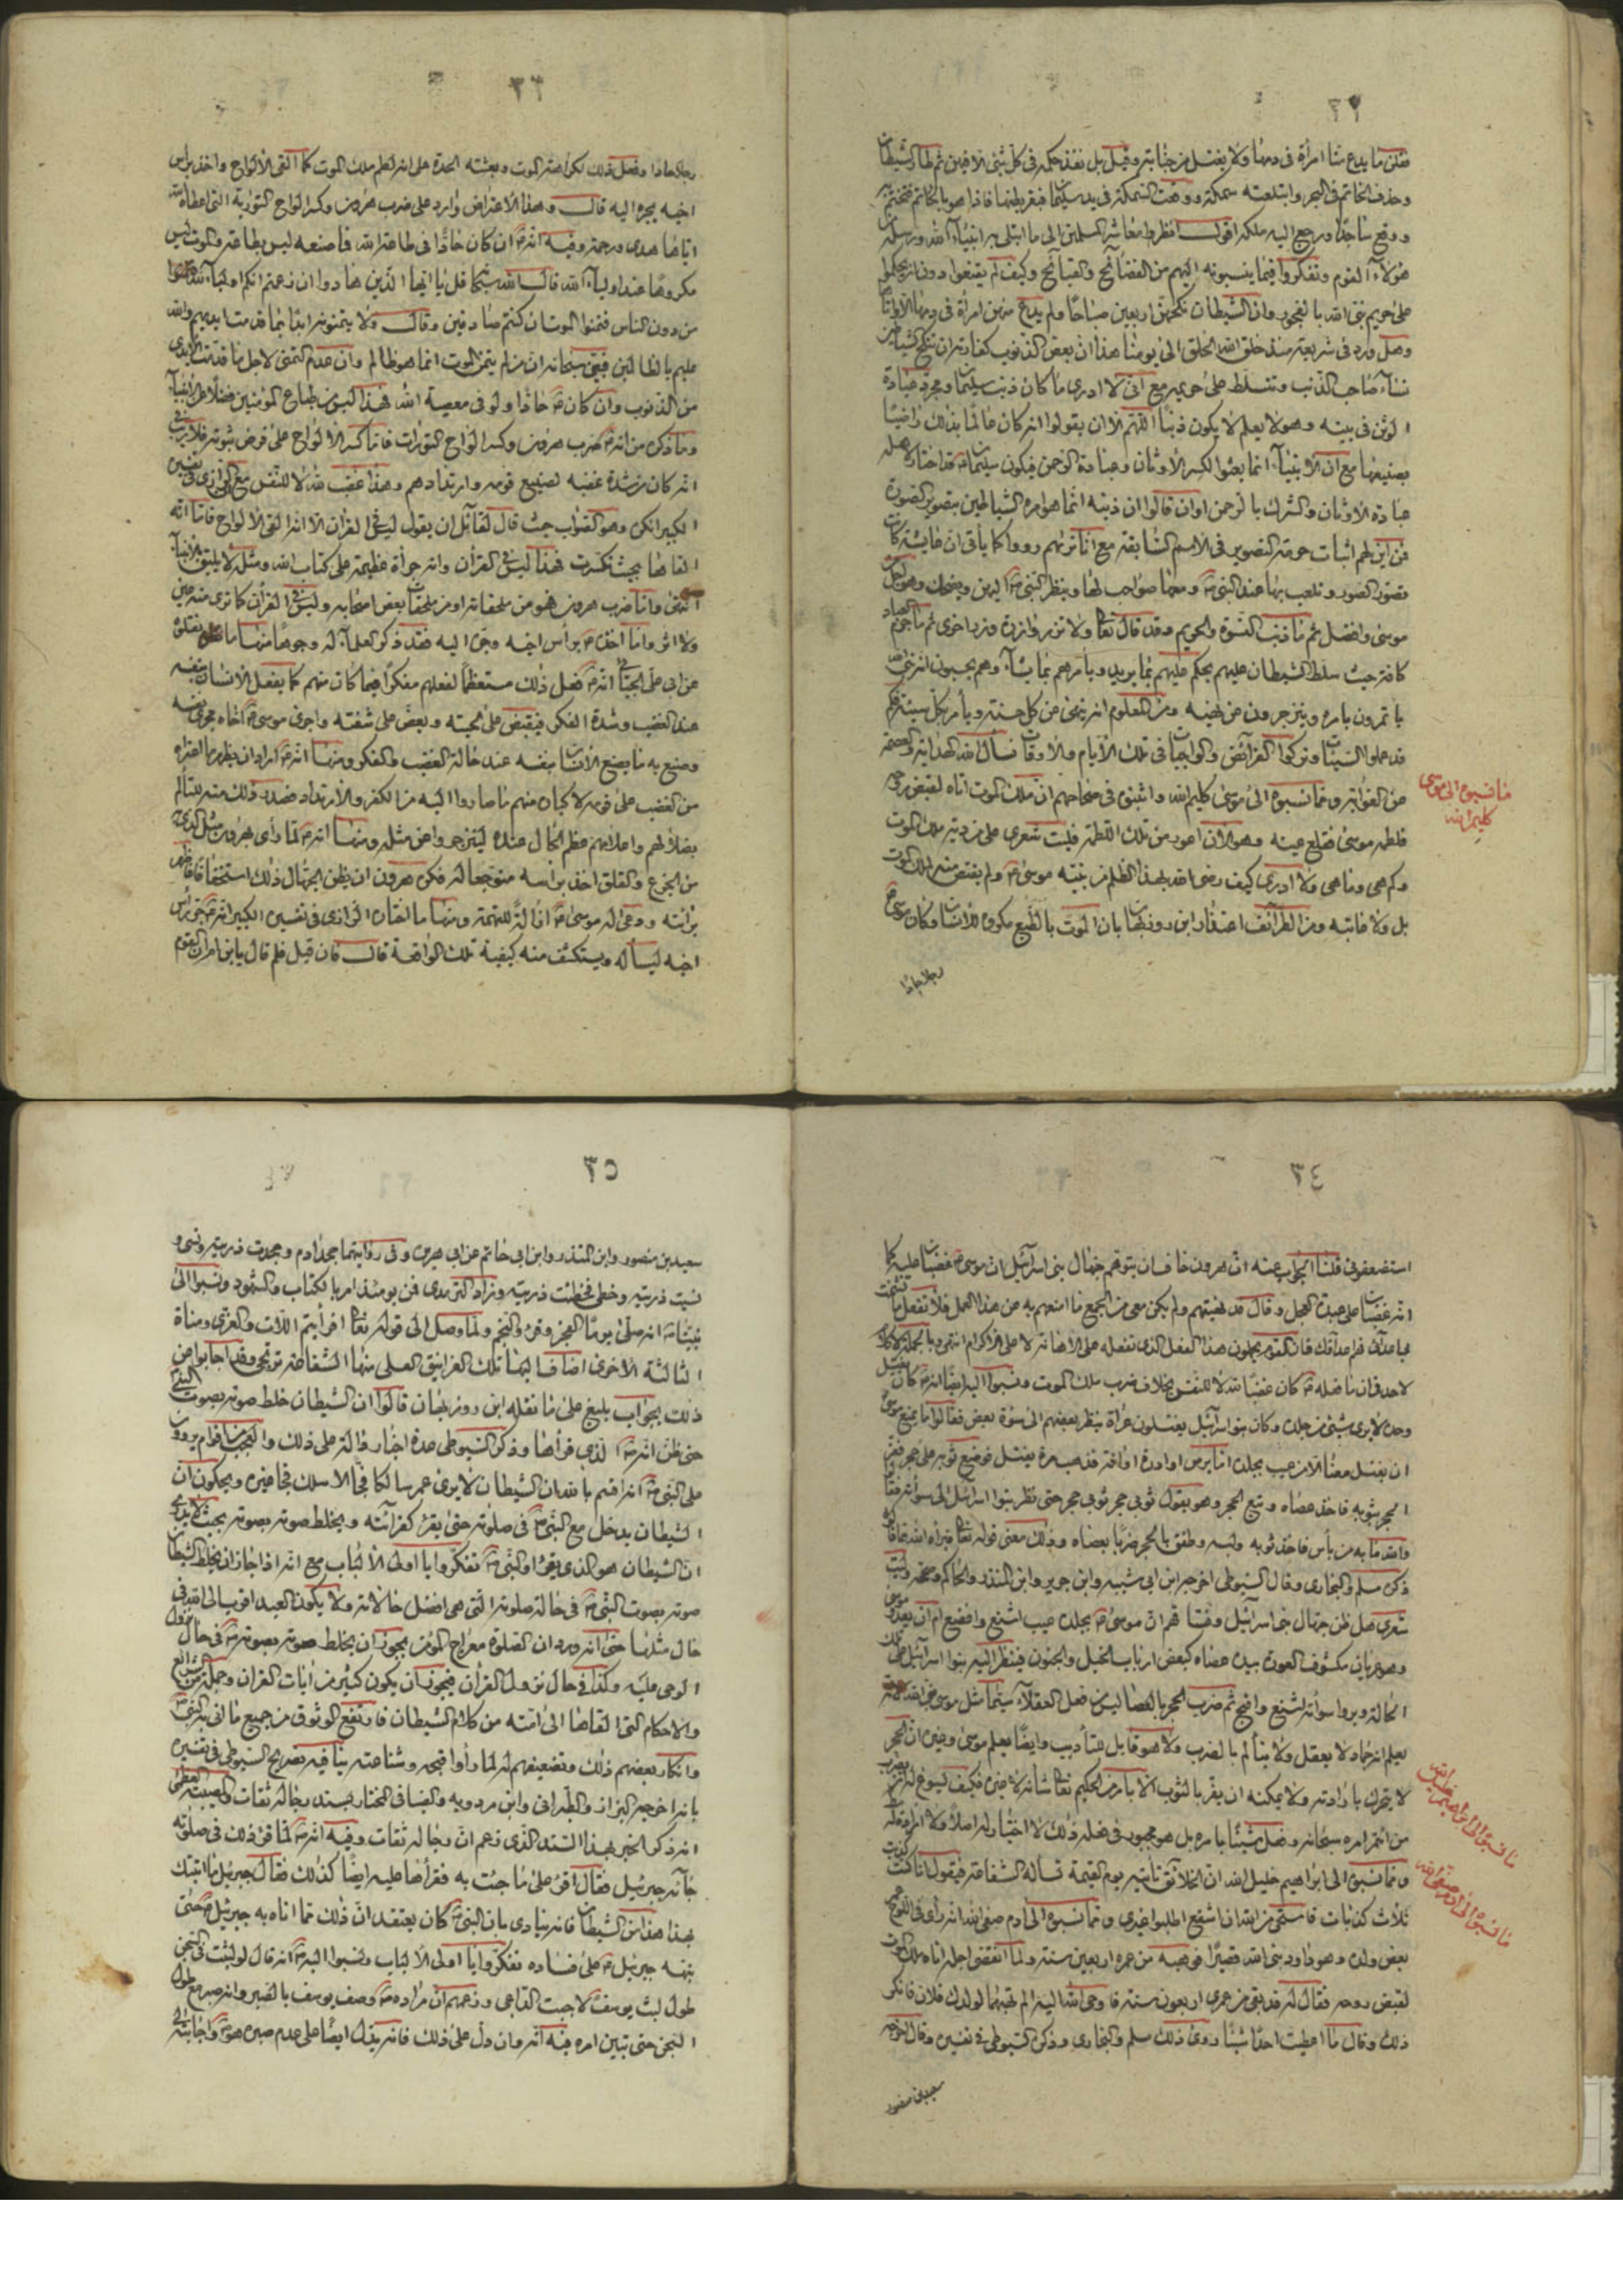 ٣٢
فقلن ما يدع منا امرأة في دمها ولا يغتسل من جنابته وقيل بل نفذ حكمه في كل شئ الا فيهن ثم طار الشيطان
وحذف الخاتم في البحر وابتلعته سمكة ووقعت السمكة في يد سليمان فبقر بطنها فاذا هو بالخاتم فتختم به
ووقع ساجدا ورجع اليه ملكه اقول انظروا معاشر المسلمين الى ما ابتلى به انبياء الله ورسله
هؤلاء القوم وتفكروا فيما ينسبونه اليهم من الفضائح والقبائح وكيف لم يقنعوا دون ان يحكموا
على حريم نبي الله بالفجور وان الشيطان نكحهن اربعين صباحا ولم يدع منهن امرأة في دمها الا واتاها
وهل ورد في شريعة منذ خلق الله الخلق الى يومنا هذا ان بعض الذنوب كفارته ان تنكح الشياطين
نساء صاحب الذنب وتتسلط على حريمه مع اني لا ادري ما كان ذنب سليمان ومجرد عبادة
الوثن في بيته وهو لا يعلم لا يكون ذنبا اللهم الا ان يقولوا انه كان عالما بذلك راضيا
بصنيعها مع ان الانبياء انما بعثوا لكسر الاوثان وعبادة الرحمن فيكون سليمان قد اختار لاهله
عبادة الاوثان والشرك بالرحمن وان قالوا ان ذنبه انما هو امره الشياطين بتصوير الصورة
فمن اين لهم اثبات حرمة التصوير في الامم السابقة مع انا نريهم رووا كما يأتي ان عايشة كانت
تصور الصور وتلعب بها عند النبي ص ومعها صواحب لها وينظر النبي ص اليهن ويضحك وهو اجل من
موسى وافضل ثم ما ذنب النسوة والحريم وقد قال تعالى ولا تزر وازرة وزر اخرى ثم ما جرم العباد
كافة حيث سلط الشيطان عليهم يحكم عليهم بما يريد ويأمرهم بما يشاء وهم يحسبون انه نبي الله
يأتمرون بامره وينزجرون عن نهيه ومن المعلوم انه ينهى عن كل حسنة ويأمر بكل سيئة فكم
قد عملوا السيئات وتركوا الفرائض والواجبات في تلك الايام والاوقات نسأل الله الهداية والعصمة
عن الغواية ومما نسبوه الى موسى كليم الله واثبتوه في صحاحهم ان ملك الموت اتاه لقبض روحه
فلطمه موسى فقلع عينه وهو الان اعور من تلك اللطمة فليت شعري على من دية ملك الموت
وكم هي وما هي ولا ادري كيف رضي الله بهذا الظلم من نبيه موسى ع ولم يقتص منه لملك الموت
بل ولا عاتبه ومن الطرائف اعتذار ابن روزبهان بان الموت بالطبع مكروه للانسان وكان موسى ع
رجلا حادا
ما نسبوه الى موسى
كليم الله
٣٣
رجلا حادا وفعل ذلك لكراهته الموت وبعثته الحدة على ان لطم ملك الموت كما القى الالواح واخذ براس
اخيه يجره اليه قال وهذا الاعتراض وارد على ضرب هرون وكسر الواح التورية التي اعطاه الله
اياها هدى ورحمة وفيه انه ع ان كان حادا في طاعة الله فما صنعه ليس بطاعة والموت ليس
مكروها عند اولياء الله قال الله سبحانه قل يا ايها الذين هادوا ان زعمتم انكم اولياء لله
من دون الناس فتمنوا الموت ان كنتم صادقين وقال ولا يتمنونه ابدا بما قدمت ايديهم والله
عليم بالظالمين فبين سبحانه ان من لم يتمن الموت انما هو ظالم وان عدم التمني لاجل ما قدمت الايدي
من الذنوب وان كان ع حادا ولو في معصية الله فهذا ليس من طباع المؤمنين فضلا عن الانبياء
وما ذكره من انه ع ضرب هرون وكسر الواح التورات فاما كسر الالواح على فرض ثبوته فلا ريب في
انه كان من شدة غضبه لصنيع قومه وارتدادهم وهذا غضب لله لا للنفس مع ان الرازي في تفسيره
الكبير انكره وهو الصواب حيث قال لقائل ان يقول ليس في القران الا انه القى الالواح فاما انه
القاها بحيث تكسرت فهذا ليس في القرآن وانه جرأة عظيمة على كتاب الله ومثله لا يليق بالانبياء
انتهى واما ضرب هرون فهو من ملحقاته او من ملحقات بعض اصحابه وليس في القرآن كما ترى منه عين
ولا اثر واما اخذه ع براس اخيه وجره اليه فقد ذكر العلماء له وجوها منها ما نقلوه
عن ابي على الجبائي انه ع فعل ذلك مستعظما لفعلهم مفكرا فيما كان منهم كما يفعل الانسان بنفسه
عند الغضب وشدة الفكر فيقبض على لحيته ويعض على شفته واجرى موسى ع اخاه مجرى نفسه
وصنع به ما يصنع الانسان بنفسه عند حالة الغضب والفكر ومنها انه ع اراد ان يظهر ما اعتراه
من الغضب على قومه لاكباره منهم ما صاروا اليه من الكفر والارتداد فصدر ذلك منه للتألم
بضلالهم واعلامهم عظم الحال عنده لينزجروا عن مثله ومنها انه ع لما رأى بهرون مثل الذي به
من الجزع والقلق اخذ براسه متوجعا له فكره هرون ان يظن الجهال ذلك استخفافا فاظهر
برائته ودعى له موسى ع ازالة للتهمة ومنها ما اختاره الرازي في تفسيره الكبير انه ع جر رأس
اخيه ليسأله ويستكشف منه كيفية تلك الواقعة قال فان قيل فلم قال يابن ام ان القوم
٣٤
استضعفوني قلنا الجواب عنه ان هرون خاف ان يتوهم جهال بني اسرائيل ان موسى ع غضبان عليه كما
انه غضبان على عبدة العجل وقال قد نهيتهم ولم يكن معي من الجمع ما امنعهم به عن هذا العمل فلا تفعل ما تشمت
بي اعدائي فهم اعداؤك فان القوم يحملون هذا الفعل الذي تفعله على الاهانة لا على الاكرام انتهى وبالجملة لا كلام
لاحد في ان ما فعله ع كان غضبا لله لا للنفس بخلاف ضرب ملك الموت ونسبوا اليه ايضا انه ع كان يغتسل
وحده لا يرى شئ من جلده وكان بنو اسرائيل يغتسلون عراة ينظر بعضهم الى سوأة بعض فقالوا ما يمنع موسى
ان يغتسل معنا الا من عيب بجلده اما برص او ادرة او افة فذهب مرة يغتسل فوضع ثوبه على حجر ففر
الحجر بثوبه فاخذ عصاه وتبع الحجر وهو يقول ثوبي حجر ثوبي حجر حتى نظر بنوا اسرائيل الى سوأته فقالوا
والله ما به من بأس فاخذ ثوبه ولبسه وطفق بالحجر ضربا بعصاه وذلك معنى قوله تعالى فبرأه الله مما قالوا
ذكره مسلم والبخاري وقال السيوطي اخرجه ابن ابي شيبه وابن جرير وابن المنذر والحاكم وصححه وليت
شعري هل ظن جهال بني اسرائيل وقتا قيم ان موسى ع بجلده عيب اشنع وافضع ام ان يعدو موسى
وهو عريان مكشوف العورة بيده عصاه كبعض ارباب الخبل والجنون فينظر اليه بنوا اسرائيل على تلك
الحالة ويروا سوأته لشنع واضح ثم ضرب الحجر بالعصا ليس من فعل العقلاء سيما مثل موسى
يعلم انه جماد لا يعقل ولا يتألم بالضرب ولا هو قابل للتأديب وايضا يعلم موسى وغيره ان الحجر
لا يتحرك بارادته ولا يمكنه ان يفر بالثوب الا بامر من الحكيم تعالى شأنه لا غيره فكيف يسوغ له ان يضرب
من ائتمر امره سبحانه وفعل شيئا بامره بل هو مجبور في فعله ذلك لا اختيار له اصلا ولا
ومما نسبوه الى ابراهيم خليل الله ان الخلائق تأتيه يوم القيمة تسأله الشفاعة فيقول انا كذبت
ثلاث كذبات فاستحي من الله ان اشفع اطلبوا غيري ومما نسبوه الى ادم صفي الله انه رأى في اللوح عمر
بعض ولده وهو داود نبي الله قصيرا فوهبه من عمره اربعين سنة ولما انقضى اجله اتاه ملك الموت
لقبض روحه فقال له قد بقى من عمري اربعون سنة فاوحى الله اليه الم تهبها لولدك فلان فانكر
ذلك وقال ما اعطيت احدا شيئا روى ذلك مسلم والبخاري وذكره السيوطي في تفسيره وقال اخرجه
سعيد بن منصور
ما نسبوه الى ابراهيم خليل الله
ما نسبوه الى ادم صفي الله
٣٥
سعيد بن منصور وابن المنذر وابن ابي حاتم عن ابي هريرة وفي روايتهما فجحد ادم وجحدت ذريته ونسى و
نسيت ذريته وخطى فخطئت ذريته وزاد الترمذي فمن يومئذ امر بالكتاب والشهود ونسبوا الى
نبينا ص انه صلى يوما الفجر وقرء والنجم ولما وصل الى قوله تعالى افرأيتم اللات والعزى ومناة
الثالثة الاخرى اضاف اليها تلك الغرانيق العلى منها الشفاعة ترتجى وقد اجابوا عن
ذلك بجواب بليغ على ما نقله ابن روزبهان قالوا ان الشيطان خلط صوته بصوت النبي
حتى ظن انه ص الذي قرأها وذكر السيوطي عدة اخبار دالة على ذلك والعجب يروون
على النبي ص انه اقسم بالله ان الشيطان لا يرى عمر سالكا فجا الا سلك فجا غيره ويحكمون ان
الشيطان يدخل مع النبي ص في صلوته حتى يقرء كقرائته ويخلط صوته بصوته بحيث لا يدري
ان الشيطان هو الذي يقرء او النبي ص تفكروا يا اولى الالباب مع انه اذا جاز ان يخلط الشيطان
صوته بصوت النبي ص في حالة صلوته التي هي افضل حالاته ولا يكون العبد اقرب الى الله في
حال مثلها حتى انه ورد ان الصلوة معراج المؤمن يجوز ان يخلط صوته بصوته ص في حال نزول
الوحي عليه وكذا في حال نزول القرآن فيجوز ان يكون كثير من ايات القران وجملة من الشرايع
والاحكام التي القاها الى امته من كلام الشيطان فارتفع الوثوق من جميع ما اتى به النبي ص
وانكار بعضهم ذلك وتضعيفهم له لما رأوا قبحه وشناعته ينافيه تصريح السيوطي في تفسيره
بانه اخرجه البزاز والطبراني وابن مردويه والضيا في المختار بسند رجاله ثقات والمصيبة العظمى
انه ذكر الخبر بهذا السند الذي زعم ان رجاله ثقات وفيه انه ص لما قرء ذلك في صلوته
جائه جبرئيل فقال اقرء على ما جئت به فقرأها عليه ايضا كذلك فقال جبرئيل ما اتيتك
بهذا هذا من الشيطان فانه ينادي بان النبي ص كان يعتقد ان ذلك مما اتاه به جبرئيل ع حتى
نبهه جبرئيل ع على فساده تفكروا يا اولى الالباب ونسبوا اليه ص انه قال لو لبثت في السجن
طول لبث يوسف لاجبت الداعي وزعمهم ان مراده ص وصف يوسف بالصبر وانه صبر مع طول
السجن حتى تبين امره فيه انه وان دل على ذلك فانه يدل ايضا على عدم صبره هو ص واجابته الى